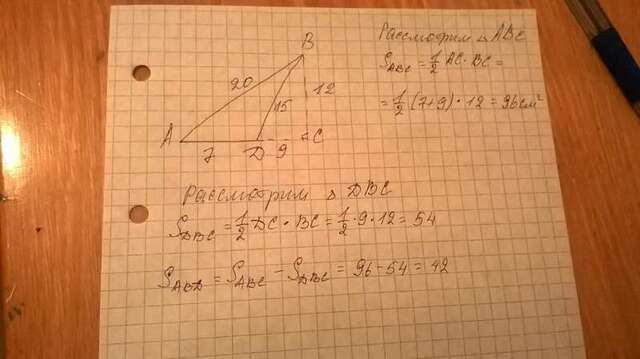 B
20
15
12
A
7
D
9
C
Рассмотрим △ ABC
S_ABC = 1/2 AC · BC =
= 1/2 (7+9) · 12 = 96 см²
Рассмотрим △ DBC
S_DBC = 1/2 DC · BC = 1/2 · 9 · 12 = 54
S_ABD = S_ABC - S_DBC = 96 - 54 = 42